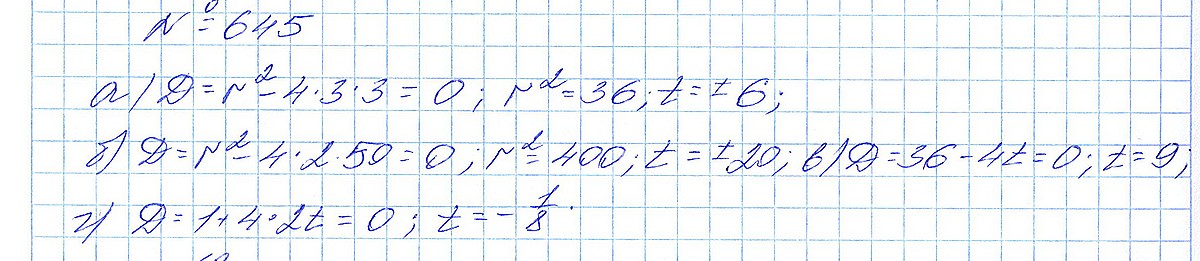 № 645
а) D = r² - 4·3·3 = 0; r² = 36; t = ±6;
б) D = r² - 4·2·50 = 0; r² = 400; t = ±20; в) D = 36 - 4t = 0; t = 9;
г) D = 1 + 4·2t = 0; t = -1/8.